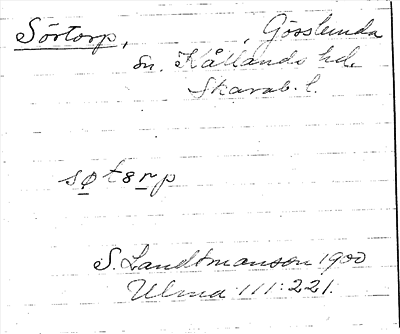 Sörtorp, , Gösslunda
sn. Kållands hd.
Skarab. l.
søt8rp
S. Landtmanson 1900
Ulma 111:221.